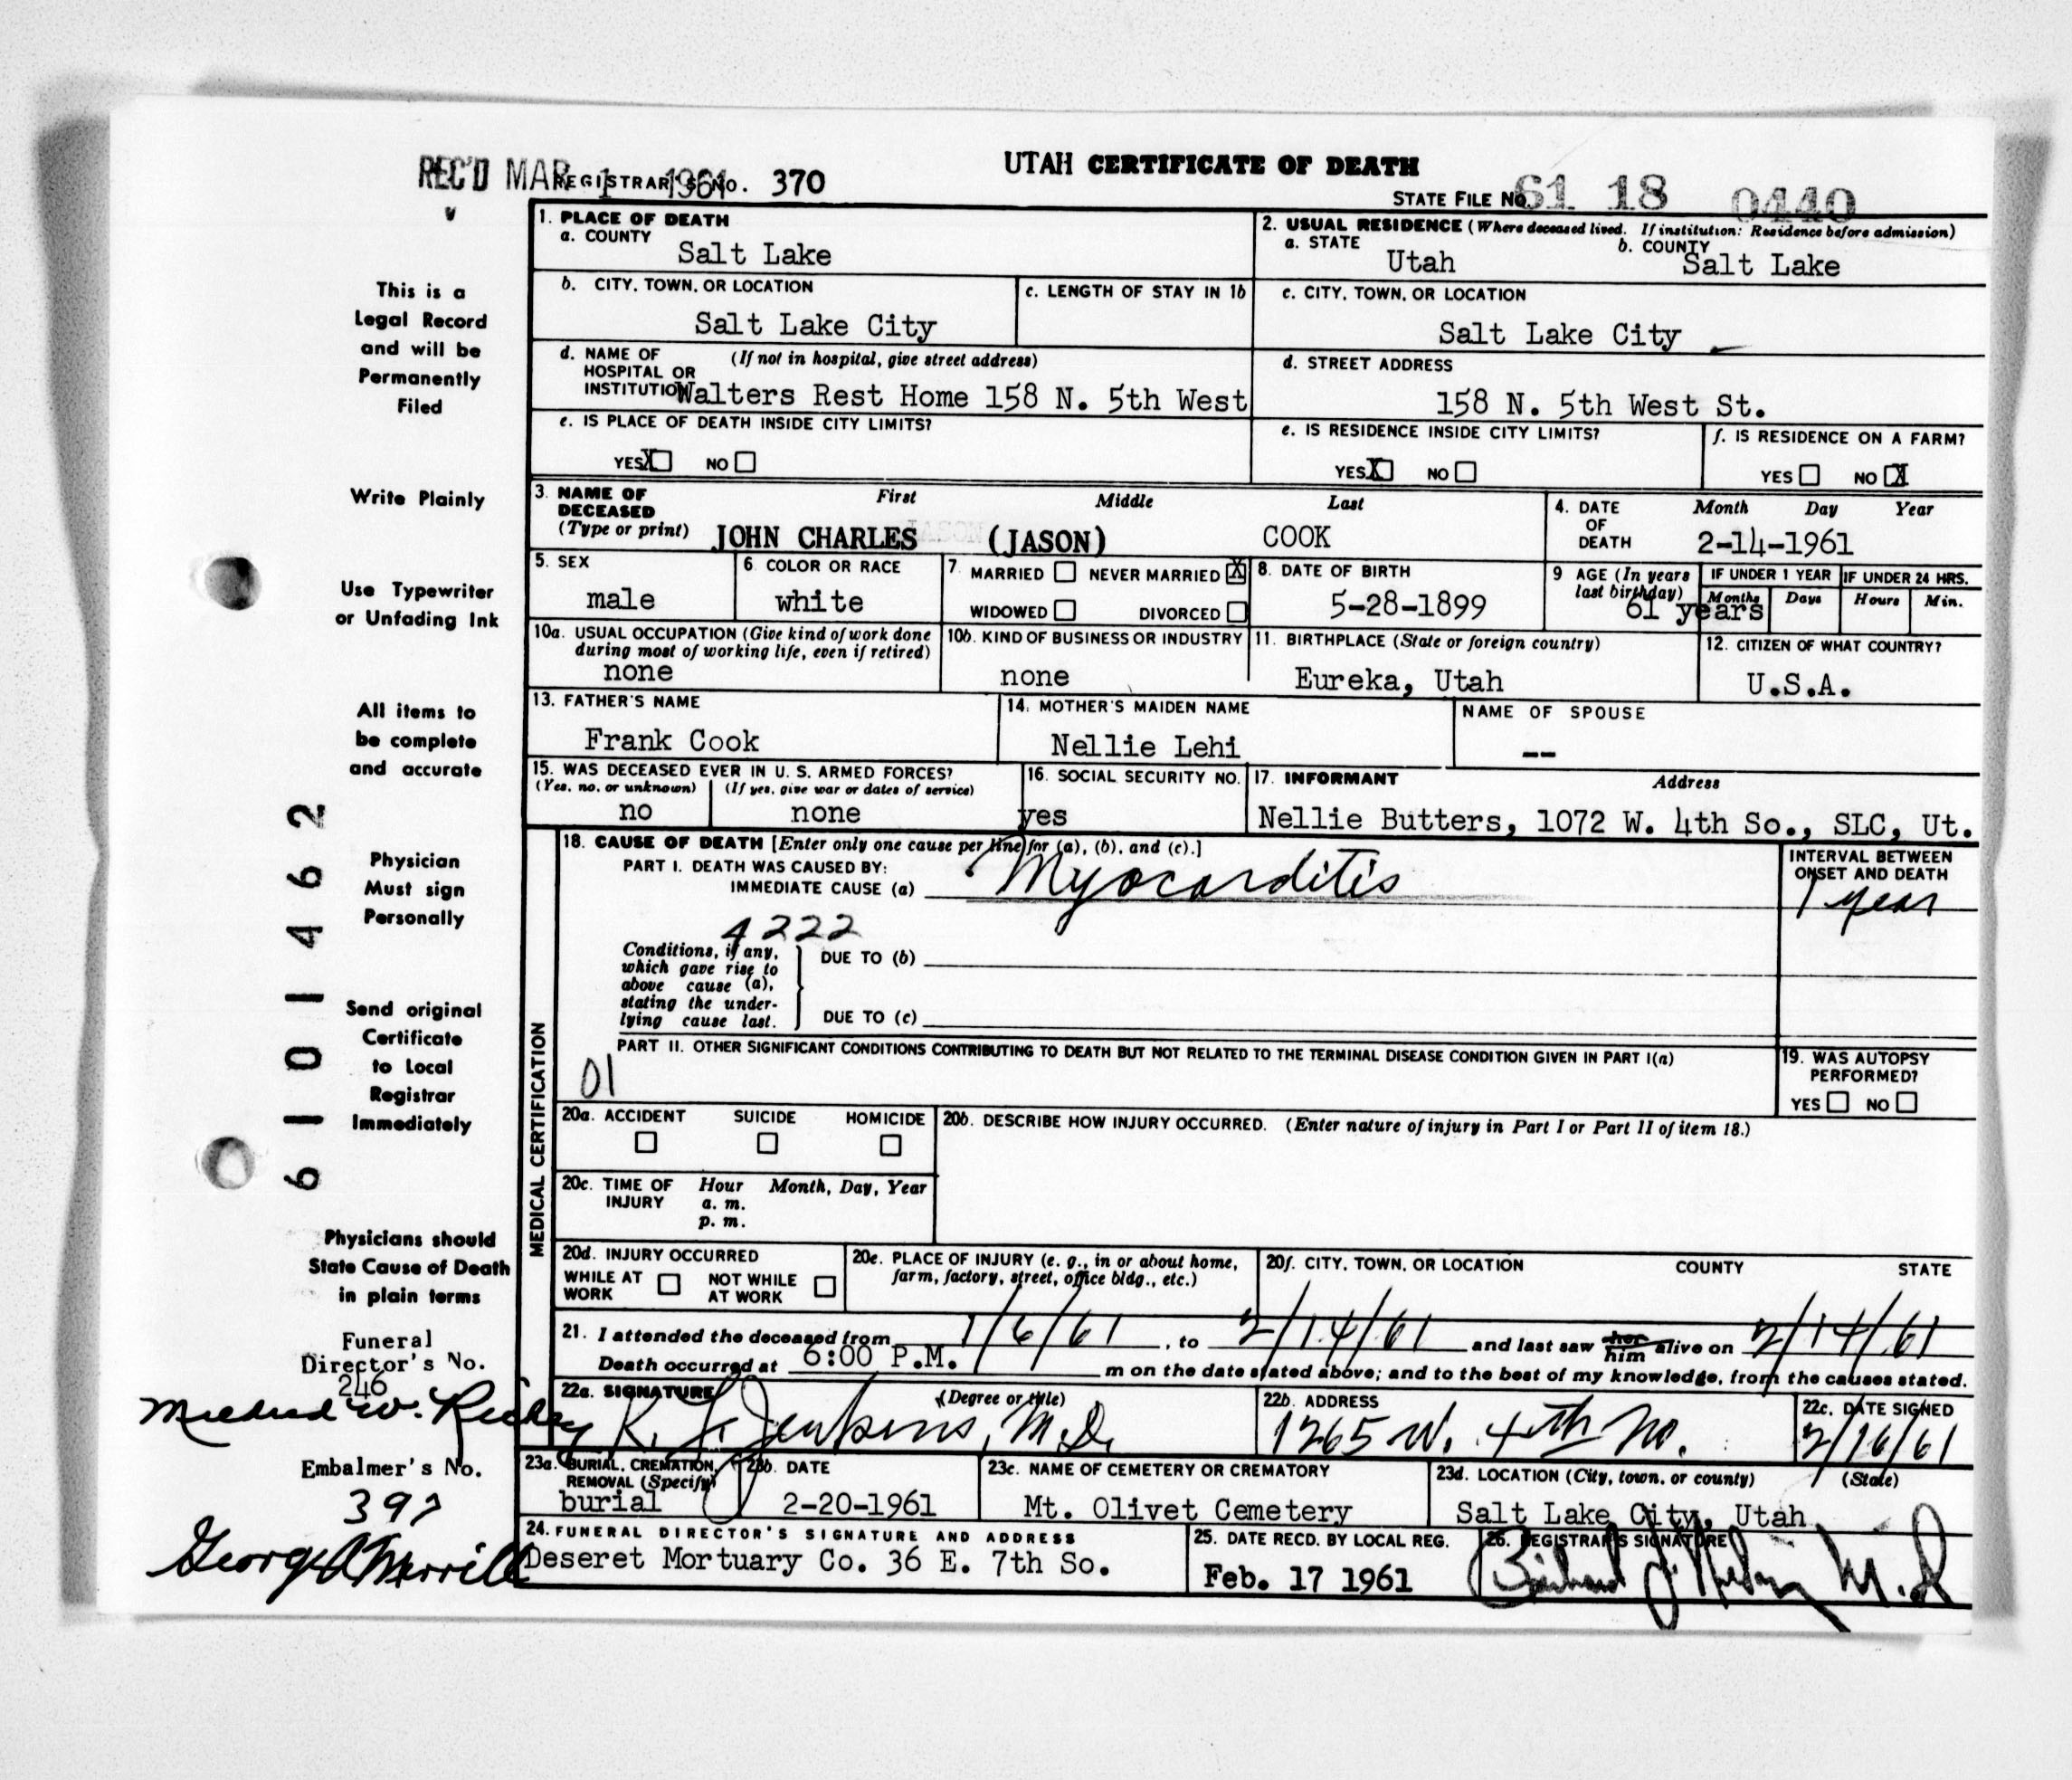 UTAH CERTIFICATE OF DEATH
REC'D MAR 1 1961
REGISTRAR'S NO. 370
STATE FILE NO. 61 18 0440
This is a
Legal Record
and will be
Permanently
Filed
Write Plainly
Use Typewriter
or Unfading Ink
All items to
be complete
and accurate
Physician
Must sign
Personally
Send original
Certificate
to Local
Registrar
Immediately
Physicians should
State Cause of Death
in plain terms
Funeral
Director's No.
246
Mildred W.
Embalmer's No.
397
George A Merrill
6101462
1. PLACE OF DEATH
a. COUNTY
Salt Lake
2. USUAL RESIDENCE (Where deceased lived. If institution: Residence before admission)
a. STATE
Utah
b. COUNTY
Salt Lake
b. CITY, TOWN, OR LOCATION
Salt Lake City
c. LENGTH OF STAY IN 1b
c. CITY, TOWN, OR LOCATION
Salt Lake City
d. NAME OF (If not in hospital, give street address)
HOSPITAL OR
INSTITUTION Walters Rest Home 158 N. 5th West
d. STREET ADDRESS
158 N. 5th West St.
e. IS PLACE OF DEATH INSIDE CITY LIMITS?
YES X NO
e. IS RESIDENCE INSIDE CITY LIMITS?
YES X NO
f. IS RESIDENCE ON A FARM?
YES NO X
3. NAME OF First Middle Last
DECEASED
(Type or print) JOHN CHARLES (JASON) COOK
4. DATE Month Day Year
OF
DEATH 2-14-1961
5. SEX
male
6 COLOR OR RACE
white
7. MARRIED NEVER MARRIED X
WIDOWED DIVORCED
8. DATE OF BIRTH
5-28-1899
9 AGE (In years
last birthday)
61 years
IF UNDER 1 YEAR IF UNDER 24 HRS.
Months Days Hours Min.
10a. USUAL OCCUPATION (Give kind of work done
during most of working life, even if retired)
none
10b. KIND OF BUSINESS OR INDUSTRY
none
11. BIRTHPLACE (State or foreign country)
Eureka, Utah
12. CITIZEN OF WHAT COUNTRY?
U.S.A.
13. FATHER'S NAME
Frank Cook
14. MOTHER'S MAIDEN NAME
Nellie Lehi
NAME OF SPOUSE
--
15. WAS DECEASED EVER IN U. S. ARMED FORCES?
(Yes, no, or unknown) (If yes, give war or dates of service)
no none
16. SOCIAL SECURITY NO.
yes
17. INFORMANT Address
Nellie Butters, 1072 W. 4th So., SLC, Ut.
MEDICAL CERTIFICATION
18. CAUSE OF DEATH [Enter only one cause per line for (a), (b), and (c).]
PART I. DEATH WAS CAUSED BY:
IMMEDIATE CAUSE (a) Myocarditis
INTERVAL BETWEEN
ONSET AND DEATH
1 year
4222
Conditions, if any,
which gave rise to
above cause (a),
stating the under-
lying cause last.
DUE TO (b)
DUE TO (c)
PART II. OTHER SIGNIFICANT CONDITIONS CONTRIBUTING TO DEATH BUT NOT RELATED TO THE TERMINAL DISEASE CONDITION GIVEN IN PART I(a)
01
19. WAS AUTOPSY
PERFORMED?
YES NO
20a. ACCIDENT SUICIDE HOMICIDE
20b. DESCRIBE HOW INJURY OCCURRED. (Enter nature of injury in Part I or Part II of item 18.)
20c. TIME OF Hour Month, Day, Year
INJURY a. m.
p. m.
20d. INJURY OCCURRED
WHILE AT NOT WHILE
WORK AT WORK
20e. PLACE OF INJURY (e. g., in or about home,
farm, factory, street, office bldg., etc.)
20f. CITY, TOWN, OR LOCATION COUNTY STATE
21. I attended the deceased from 1/6/61, to 2/14/61 and last saw her him alive on 2/14/61
Death occurred at 6:00 P.M. m on the date stated above; and to the best of my knowledge, from the causes stated.
22a. SIGNATURE (Degree or title)
Jenkins, M.D.
22b. ADDRESS
1265 W. 4th No.
22c. DATE SIGNED
2/16/61
23a. BURIAL, CREMATION,
REMOVAL (Specify)
burial
23b. DATE
2-20-1961
23c. NAME OF CEMETERY OR CREMATORY
Mt. Olivet Cemetery
23d. LOCATION (City, town, or county) (State)
Salt Lake City, Utah
24. FUNERAL DIRECTOR'S SIGNATURE AND ADDRESS
Deseret Mortuary Co. 36 E. 7th So.
25. DATE RECD. BY LOCAL REG.
Feb. 17 1961
26. REGISTRAR'S SIGNATURE
M.D